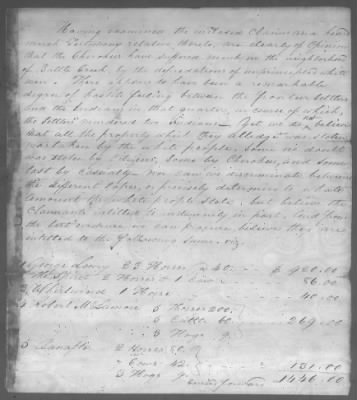 Having examined the within Claims and heard
much testimony relative thereto, are clearly of Opinion
that the Cherokees have suffered much in the neighborhood
of Battle Creek by the depredations of unprincipled white
men. There appears to have been a remarkable
degree of hostile feeling between the frontier settlers
and the Indians in that quarter, in course of which
the settlers murdered two Indians. Yet we do not believe
that all the property which they alledge was stolen
was taken by the white people, some no doubt
was stolen by Citizens, some by Cherokees, and some
lost by casualty. Nor can we discriminate between
the different losses, or precisely determine to what
amount the white people stole, but believe the
Claimants entitled to indemnity in part, and from
the best evidence we can procure believe they are
entitled to the following sums viz.
1 George Lowry 23 Horses @ 40 $ 920.00
2 Horses 1 Cow 86.00
3 Whirlwind 1 Horse 40.00
4 Robert McLemore 5 Horses 200.
5 Cattle 60 269.00
3 Hogs 9.
5 2 Horses 80.
7 Cows 42. 131.00
3 Hogs 9
1446.00